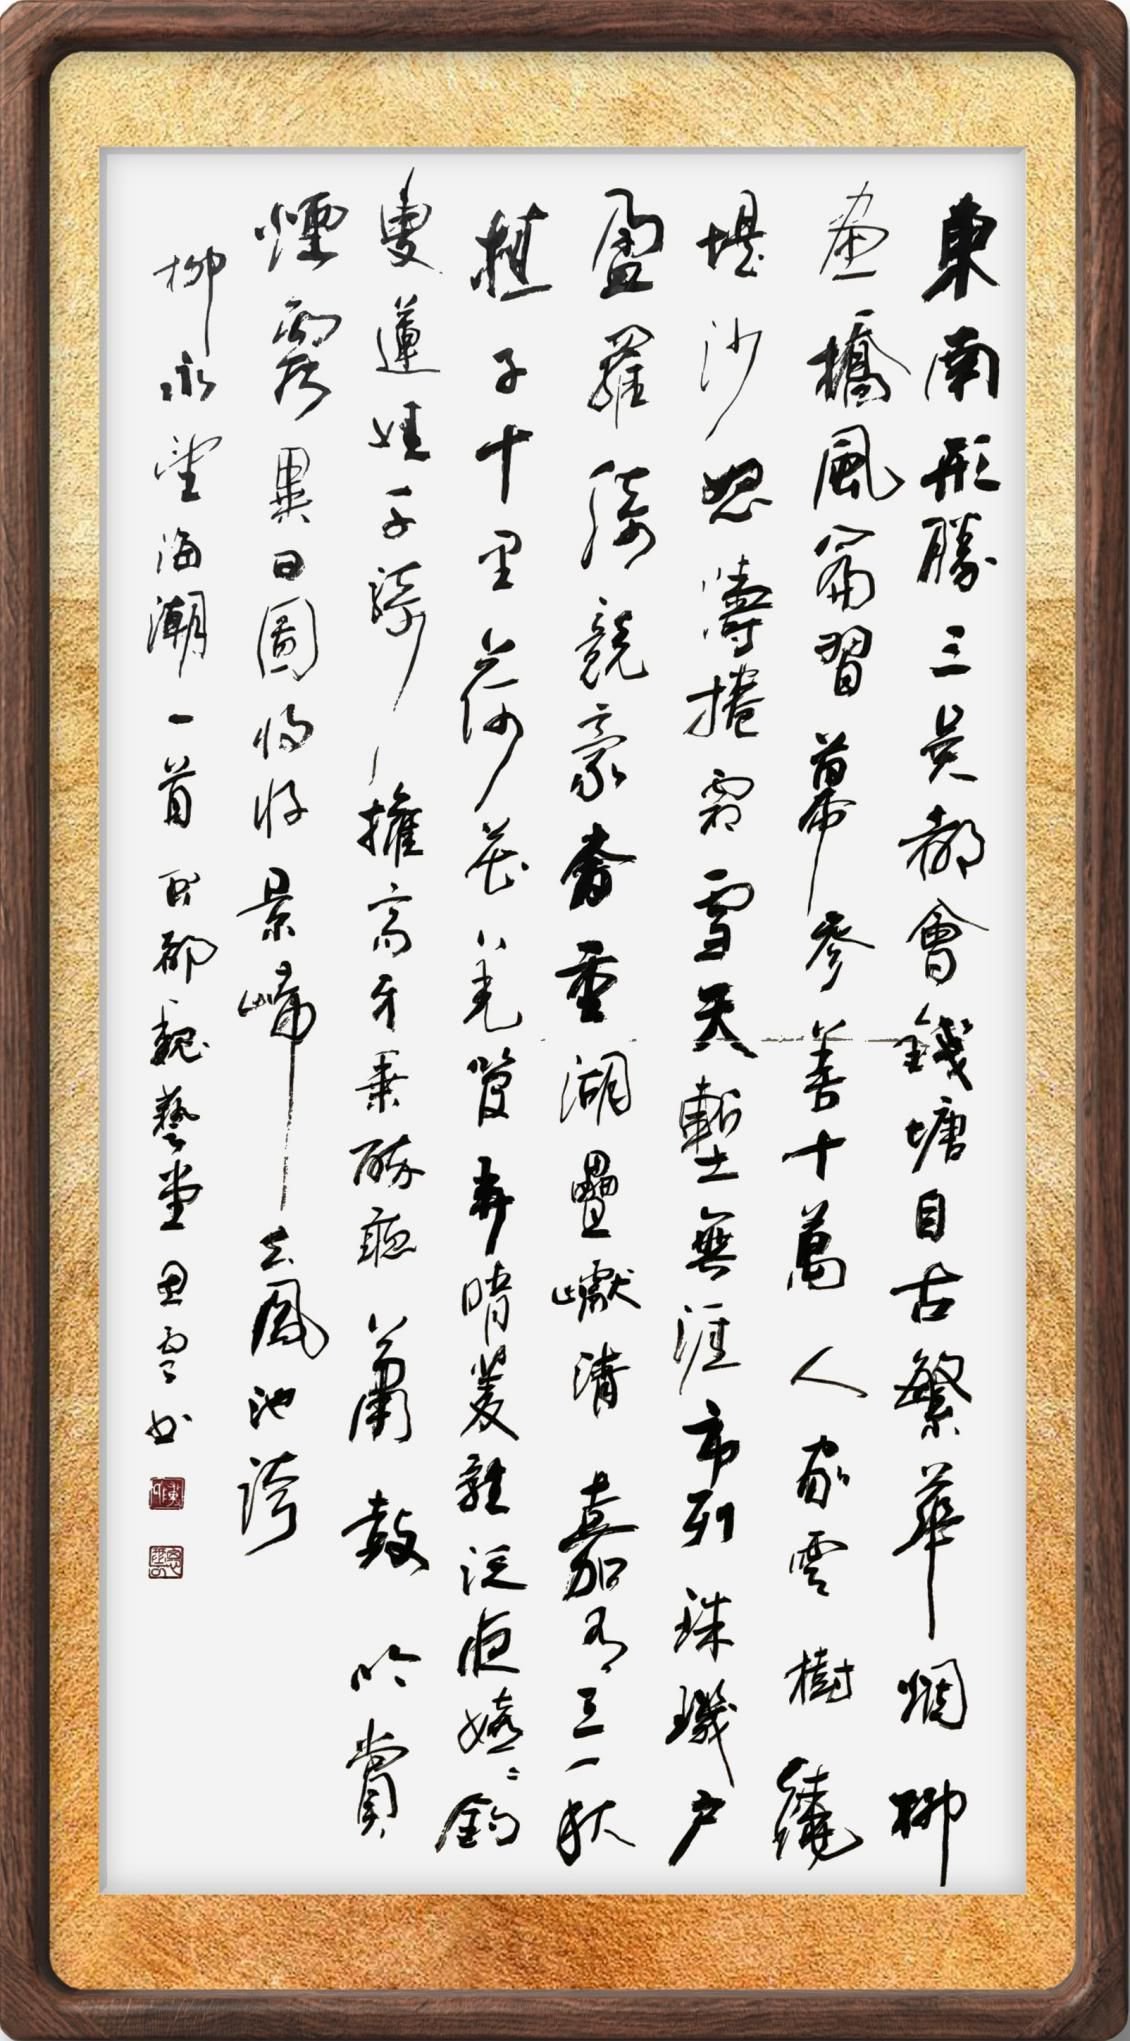 東南形勝三吴都會錢塘自古繁華烟柳
畫橋風簾翠幕參差十萬人家雲樹繞
堤沙怒濤捲霜雪天塹無涯市列珠璣户
盈羅綺競豪奢重湖疊巘清嘉有三秋
桂子十里荷花羌管弄晴菱歌泛夜嬉〻釣
叟蓮娃千騎擁高牙乘醉聽簫鼓吟賞
煙霞異日圖將好景歸去鳳池誇
柳永望海潮一首 都魏藝堂思雲書